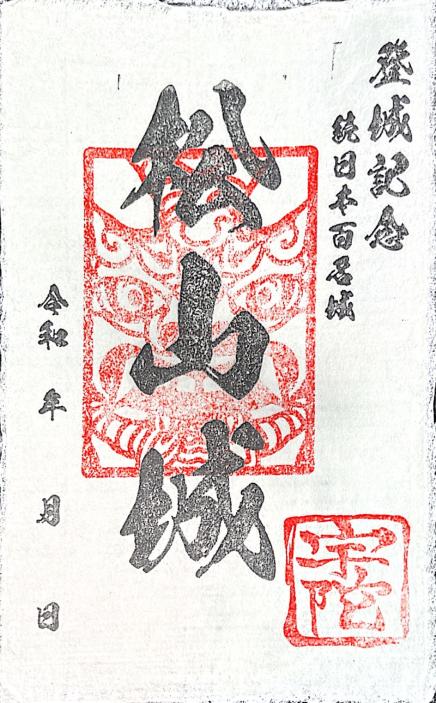 登城記念
続日本百名城
松山城
令和 年 月 日
宇陀